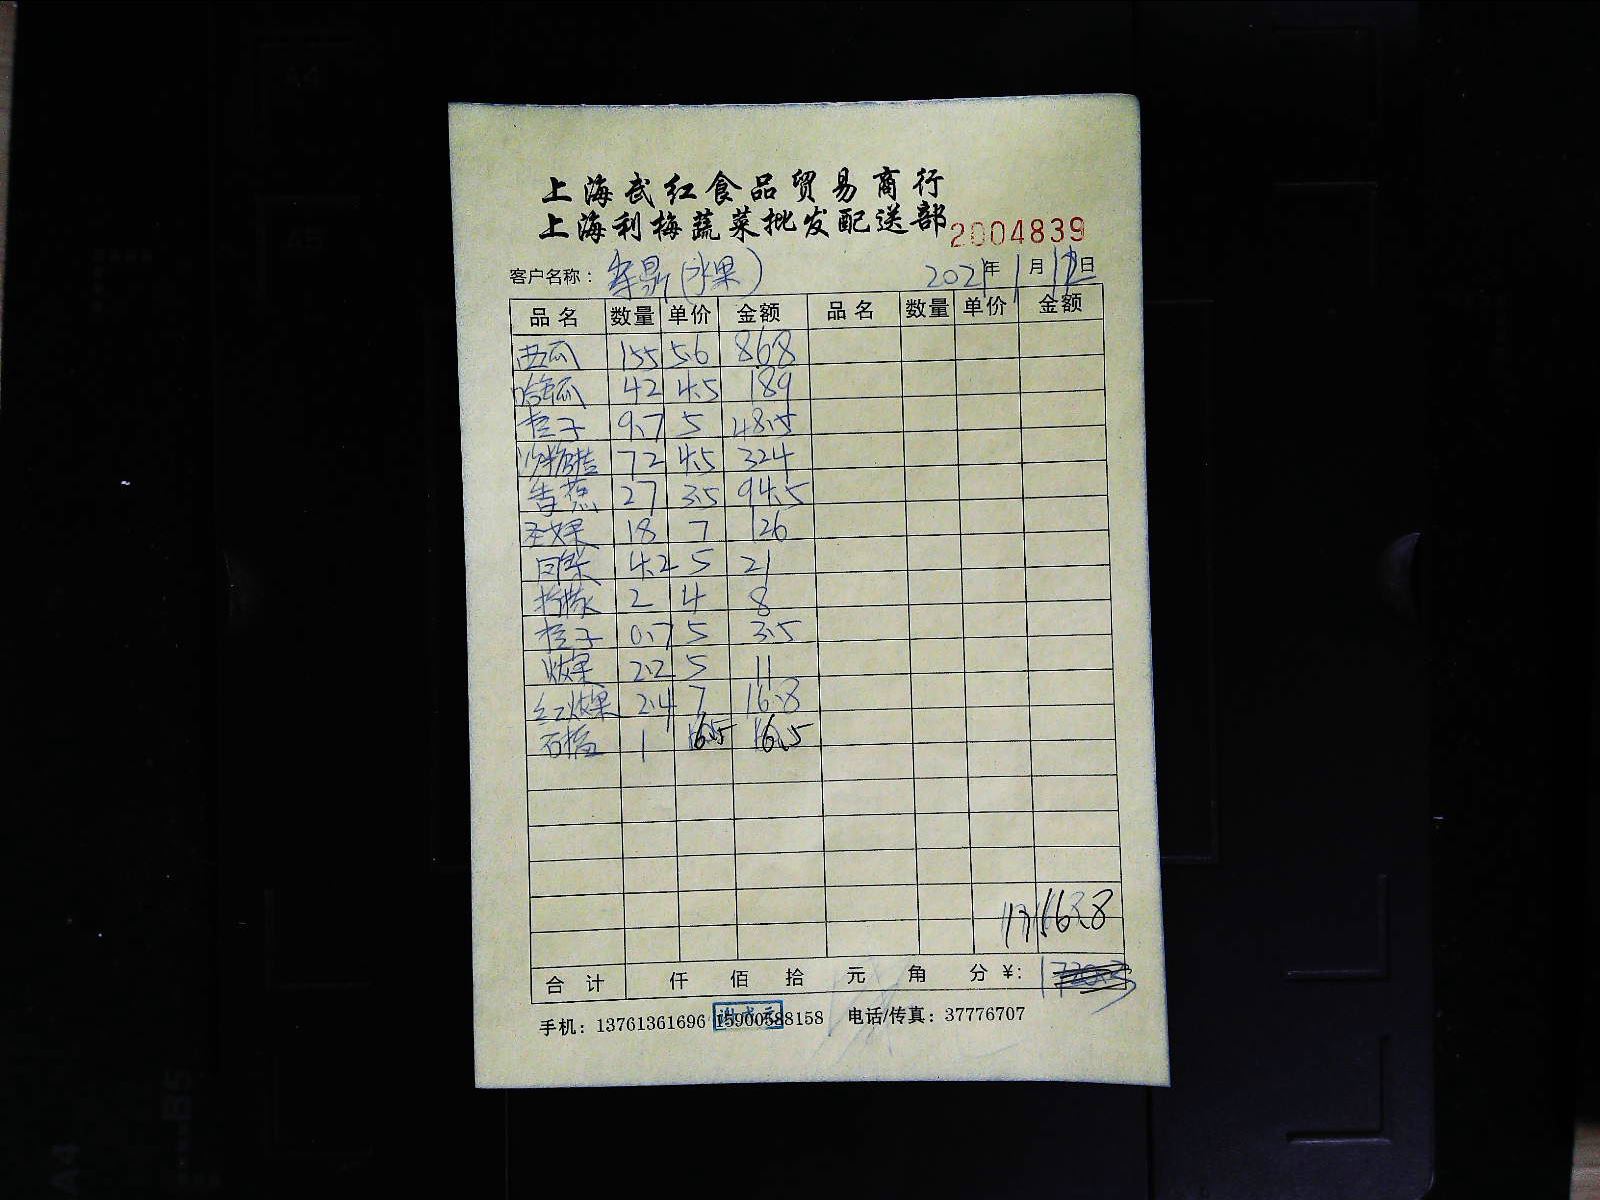 上海武红食品贸易商行
上海利梅蔬菜批发配送部
2004839
客户名称： (水果) 2021年1月12日
品名 数量 单价 金额 品名 数量 单价 金额
西瓜 155 5.6 868
哈密瓜 42 4.5 189
橙子 9.7 5 48.5
沙糖桔 72 4.5 324
香蕉 27 3.5 94.5
圣女果 18 7 126
2 4 8
4.2 5 21
橙子 0.7 5 3.5
2.2 5 11
红 2.4 7 16.8
石榴 1 16.5 16.5
合计 仟 佰 拾 元 角 分 ¥:
手机：13761361696 15900588158 电话/传真：37776707